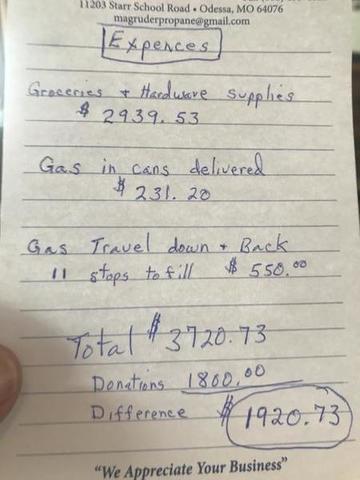 11203 Starr School Road • Odessa, MO 64076
magruderpropane@gmail.com
Expences
Groceries + Hardware Supplies
$ 2939.53
Gas in cans delivered
$ 231.20
Gas Travel down + Back
11 stops to fill $ 550.00
Total $ 3720.73
Donations 1800.00
Difference $ 1920.73
"We Appreciate Your Business"